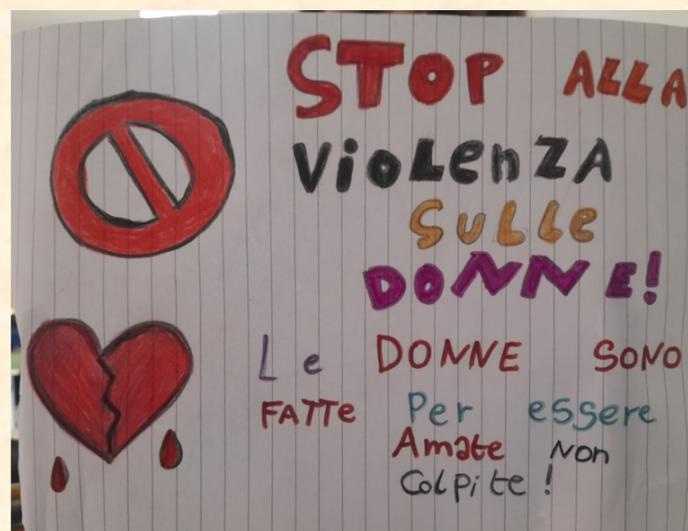 STOP ALLA
VioLenZA
SuLLe
DONNE!
Le DONNE SONO
FATTe Per essere
Amate Non
Colpite!